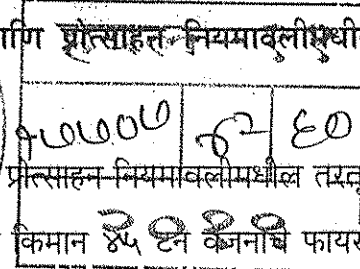 ाणि प्रोत्साहन नियमावलीमधी
६०
प्रोत्साहन नियमावलीमधील तरतू
किमान ४५ टन वजनाचे फायर